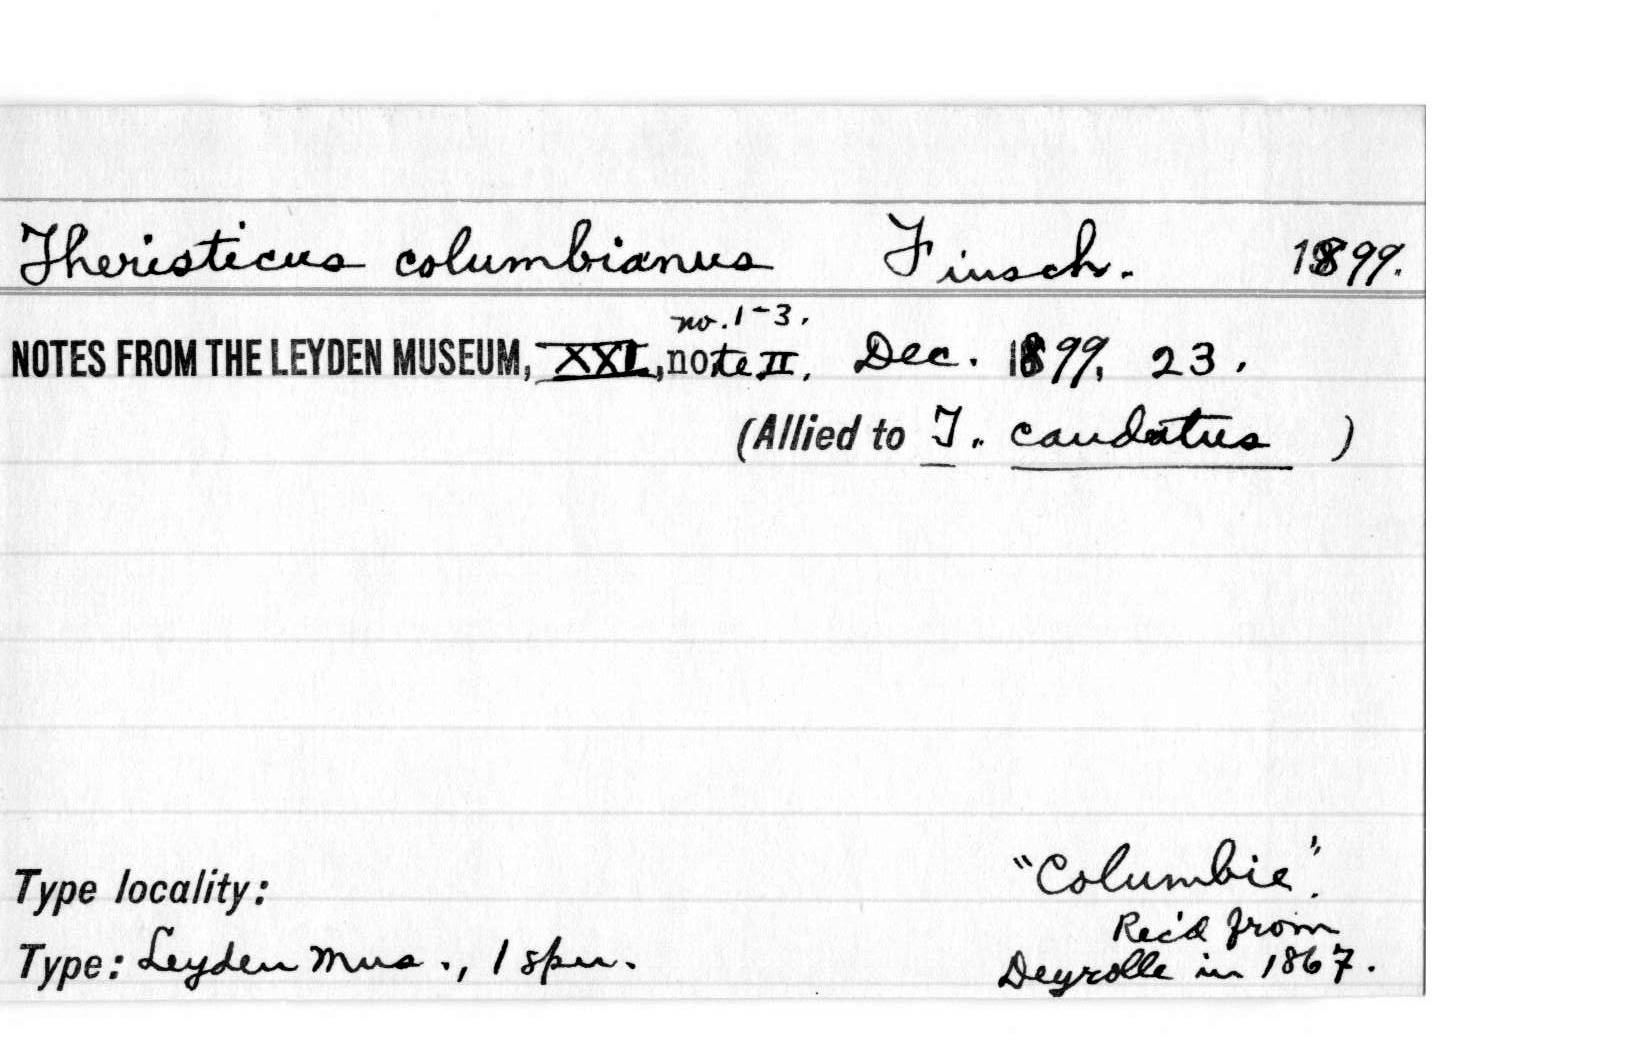 Theristicus columbianus Finsch. 1899.
no. 1-3.
NOTES FROM THE LEYDEN MUSEUM, XXI, note II. Dec. 1899, 23.
(Allied to T. caudatus )
"Columbie".
Type locality:
Rec'd from
Type: Leyden Mus., 1 spn. Deyrolle in 1867.